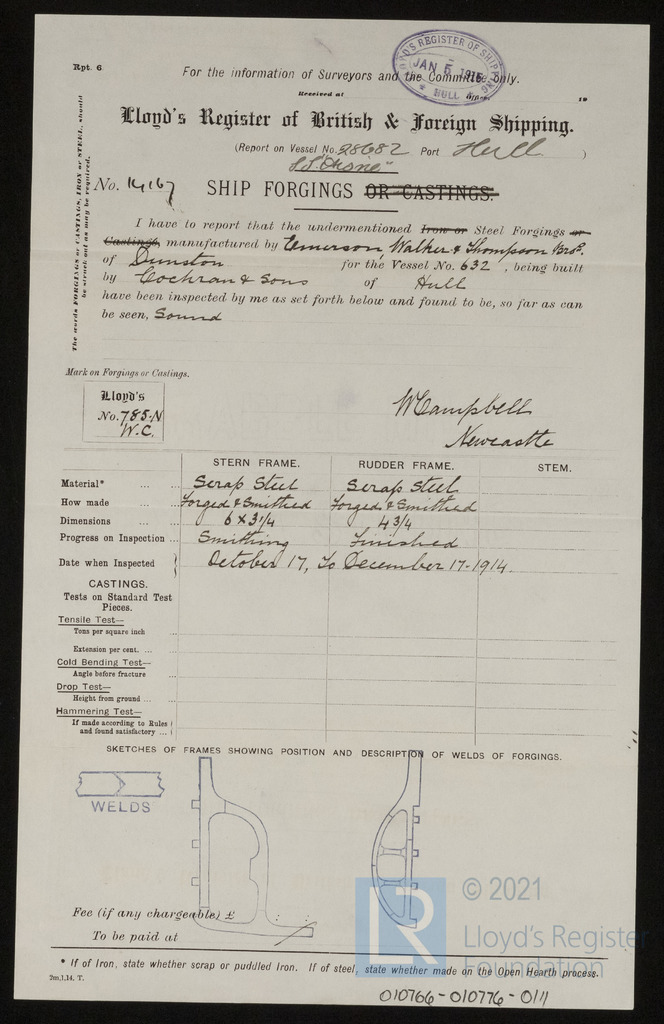 Rpt. 6
LLOYD'S REGISTER OF SHIPPING
JAN 5 1915
HULL
For the information of Surveyors and the Committee only.
Received at
19
Lloyd's Register of British & Foreign Shipping.
(Report on Vessel No. 28682 Port Hull )
No. 14167
SHIP FORGINGS OR CASTINGS.
The words FORGINGS or CASTINGS, IRON or STEEL, should
be struck out as may be required.
I have to report that the undermentioned Iron or Steel Forgings or
Castings, manufactured by Emerson, Walker & Thompson Bros.
of Dunston for the Vessel No. 632, being built
by Cochran & Sons of Hull
have been inspected by me as set forth below and found to be, so far as can
be seen, Sound
Mark on Forgings or Castings.
Lloyd's
No. 785-N
W.C.
W Campbell
Newcastle
STERN FRAME. RUDDER FRAME. STEM.
Material* ... ... Scrap Steel Scrap Steel
How made ... ... Forged & Smithied Forged & Smithied
Dimensions ... ... 6 x 3 1/4 4 3/4
Progress on Inspection ... Smithing Finished
Date when Inspected October 17, to December 17-1914.
CASTINGS.
Tests on Standard Test
Pieces.
Tensile Test—
Tons per square inch ...
Extension per cent. ... ...
Cold Bending Test—
Angle before fracture ...
Drop Test—
Height from ground ... ...
Hammering Test—
If made according to Rules
and found satisfactory ...
SKETCHES OF FRAMES SHOWING POSITION AND DESCRIPTION OF WELDS OF FORGINGS.
WELDS
Fee (if any chargeable) £ : :
To be paid at
LR
© 2021
Lloyd's Register
Foundation
* If of Iron, state whether scrap or puddled Iron. If of steel, state whether made on the Open Hearth process.
2m,1,14. T.
010766-010776-0111